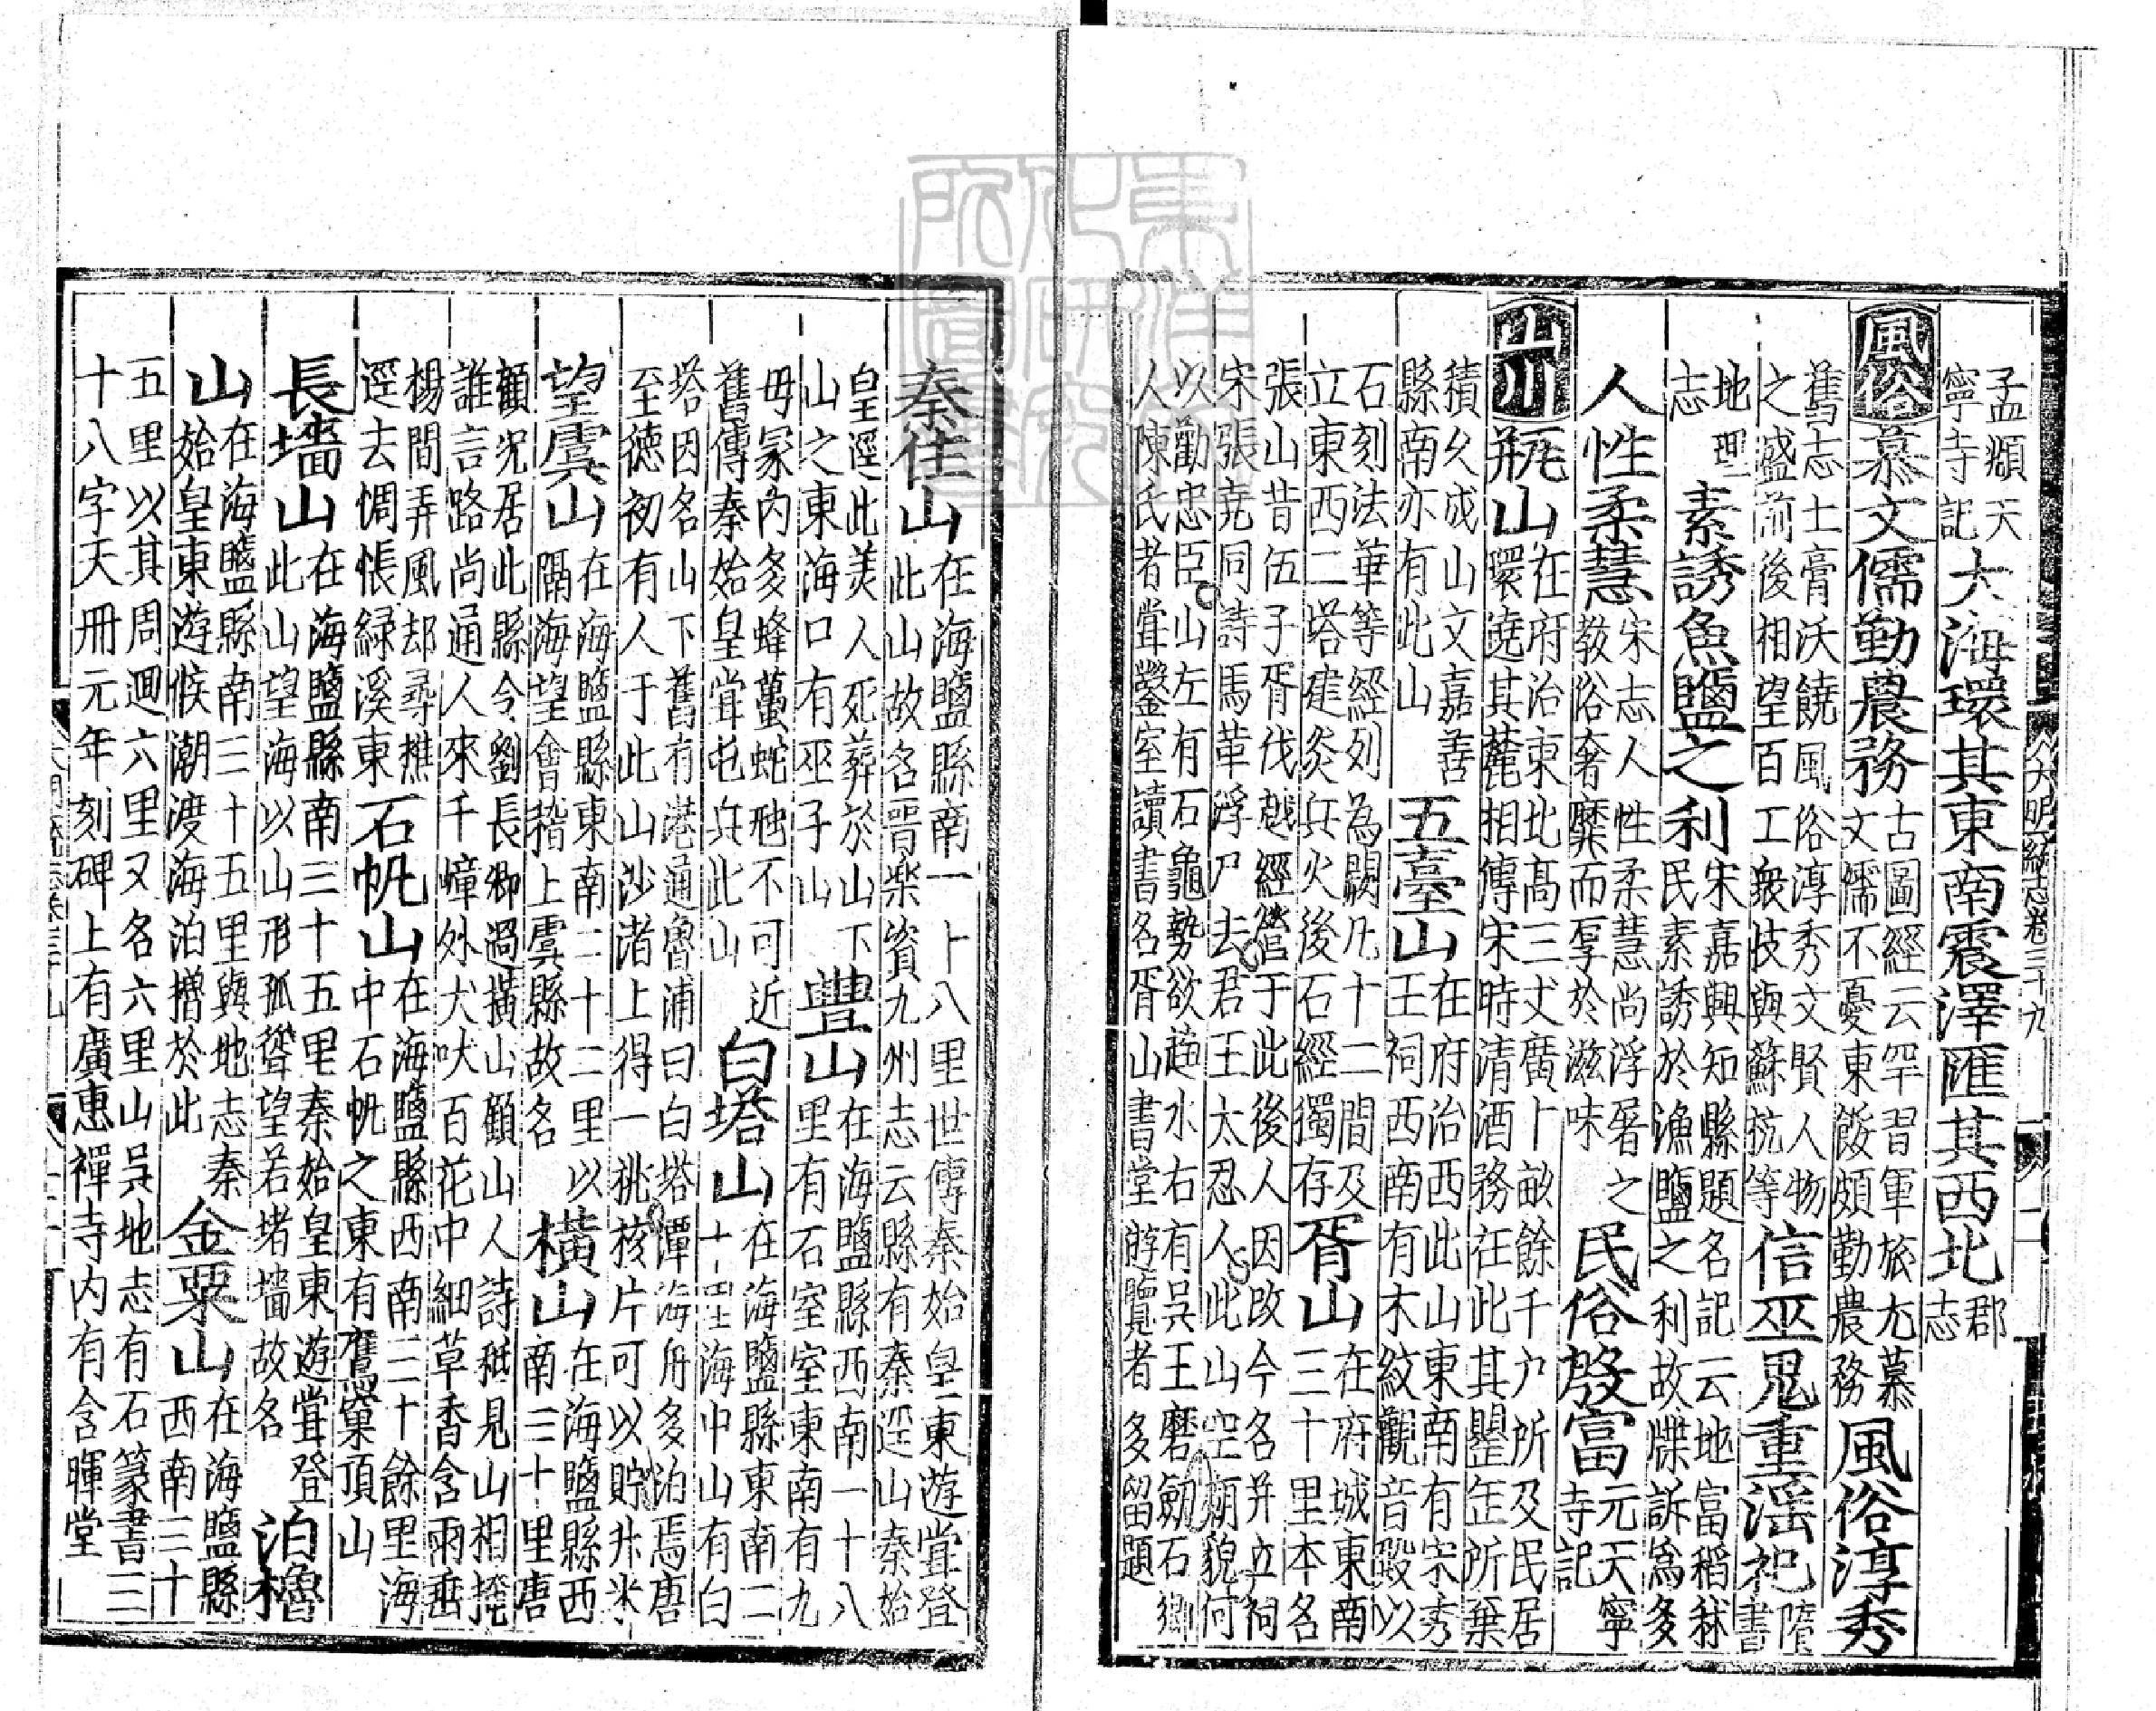 孟頫天寧寺記大海環其東南震澤匯其西北郡志
風俗慕文儒勤農務古圖經云罕習軍旅尤慕文儒不憂東餒頗勤農務風俗淳秀
舊志土膏沃饒風俗淳秀文賢人物之盛前後相望百工衆技與蘇杭等信巫鬼重淫祀隋書
地理志素誘魚鹽之利宋嘉興知縣題名記云地富稻秫民素誘於漁鹽之利故牒訴為多
人性柔慧宋志人性柔慧尚浮屠之教俗奢靡而厚於滋味民俗殷富元天寧寺記
山川瓶山在府治東北高三丈廣十畝餘千户所及民居環遶其麓相傳宋時清酒務在此其罌缶所棄
積久成山文嘉善縣南亦有此山五臺山在府治西此山東南有宋秀王祠西南有木紋觀音殿以
石刻法華等經列為闕凡十二間及立東西二塔建炎兵火後石經獨存胥山在府城東南三十里本名
張山昔伍子胥伐越經營于此後人因改今名并立祠宋張堯同詩馬革浮尸去君王太忍人此山空廟貌何
以勸忠臣山左有石龜勢欲趨水右有吳王磨劒石鄉人陳氏者甞鑿室讀書名胥山書堂遊覽者多留題
大明一統志卷三十九
秦住山在海鹽縣南一十八里世傳秦始皇東遊甞登此山故名晋樂資九州志云縣有秦逕山秦始
皇逕此美人死葬於山下山之東海口有巫子山豐山在海鹽縣西南一十八里有石室室東南有九
毋冢內多蜂蠆蛇虺不可近舊傳秦始皇甞屯兵此山白塔山在海鹽縣東南二十里海中山有白
塔因名山下舊有港通魯浦曰白塔潭海舟多泊焉唐至徳初有人于此山沙渚上得一桃核片可以貯升米
望虞山在海鹽縣東南二十二里以隔海望會稽上虞縣故名橫山在海鹽縣西南三十里唐
顧况居此縣令劉長卿過橫山顧山人詩秪見山相掩誰言路尚通人來千嶂外犬吠百花中細草香含雨垂
楊間弄風却尋樵逕去惆悵緑溪東石帆山在海鹽縣西南二十餘里海中石帆之東有鷹窠頂山
長墻山在海鹽縣南三十五里秦始皇東遊甞登此山望海以山形孤聳望若堵墻故名泊櫓
山在海鹽縣南三十五里輿地志秦始皇東遊候潮渡海泊櫓於此金粟山在海鹽縣西南三十
五里以其周迴六里又名六里山吳地志有石篆書三十八字天冊元年刻碑上有廣惠禪寺内有含暉堂